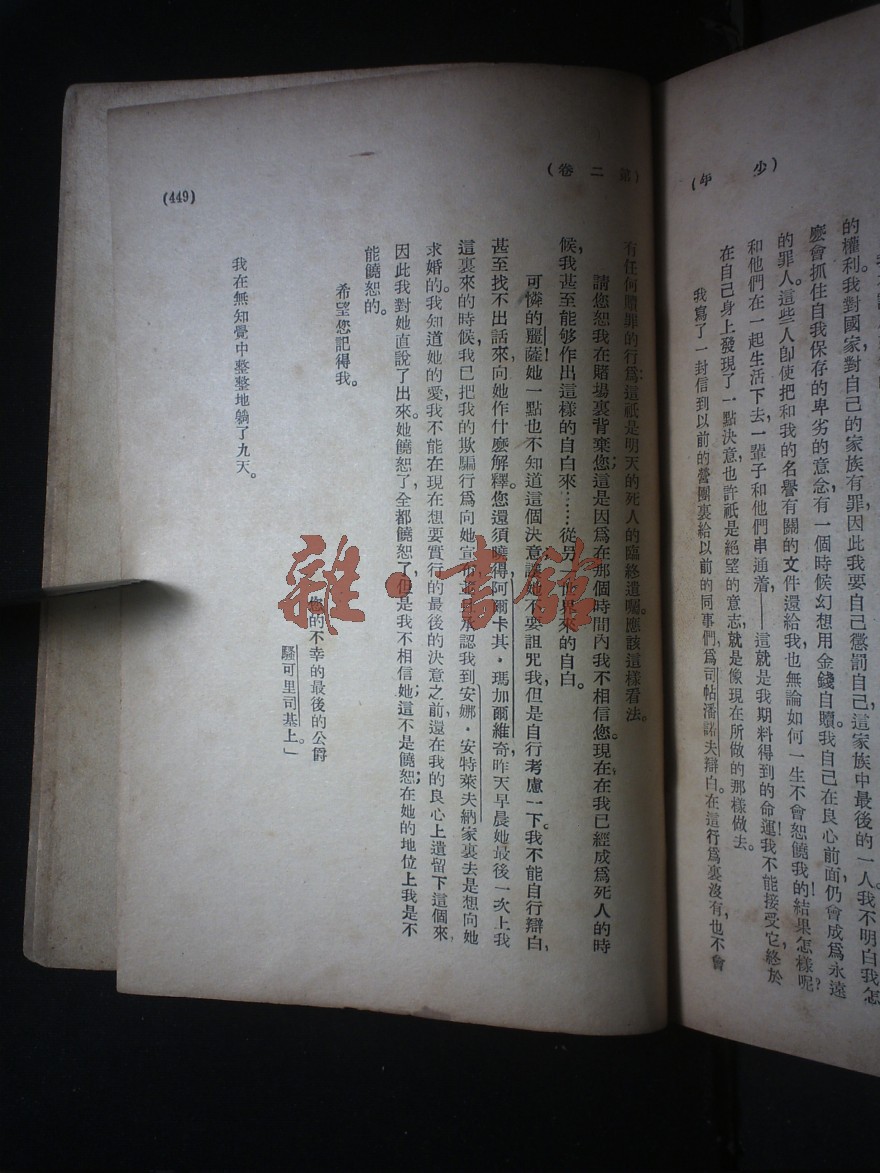 (少年)
的權利。我對國家,對自己的家族有罪,因此我要自己懲罰自己,這家族中最後的一人。我不明白我怎
麼會抓住自我保存的卑劣的意念,有一個時候幻想用金錢自贖。我自己在良心前面,仍會成爲永遠
的罪人。這些人卽使把和我的名譽有關的文件還給我,也無論如何一生不會恕饒我的!結果怎樣呢?
和他們在一起生活下去,一輩子和他們串通着——這就是我期料得到的命運!我不能接受它,終於
在自己身上發現了一點決意,也許祇是絕望的意志,就是像現在所做的那樣做去。
我寫了一封信到以前的營團裏給以前的同事們,爲司帖潘諾夫辯白。在這行爲裏沒有,也不會
(第二卷)
有任何贖罪的行爲:這祇是明天的死人的臨終遺囑。應該這樣看法。
請您恕我在賭場裏背棄您;這是因爲在那個時間內我不相信您。現在在我已經成爲死人的時
候,我甚至能夠作出這樣的自白來……從另一世界來的自白。
可憐的麗薩!她一點也不知道這個決意;讓她不要詛咒我,但是自行考慮一下。我不能自行辯白,
甚至找不出話來,向她作什麼解釋。您還須曉得,阿爾卡其·瑪加爾維奇,昨天早晨她最後一次上我
這裏來的時候,我已把我的欺騙行爲向她宣布,並且承認我到安娜·安特萊夫納家裏去是想向她
求婚的。我知道她的愛,我不能在現在想要實行的最後的決意之前還在我的良心上遺留下這個來,
因此我對她直說了出來。她饒恕了,全都饒恕了,但是我不相信她;這不是饒恕;在她的地位上我是不
能饒恕的。
希望您記得我。
您的不幸的最後的公爵
騷可里司基上。」
我在無知覺中整整地躺了九天。
(449)
雜·書館